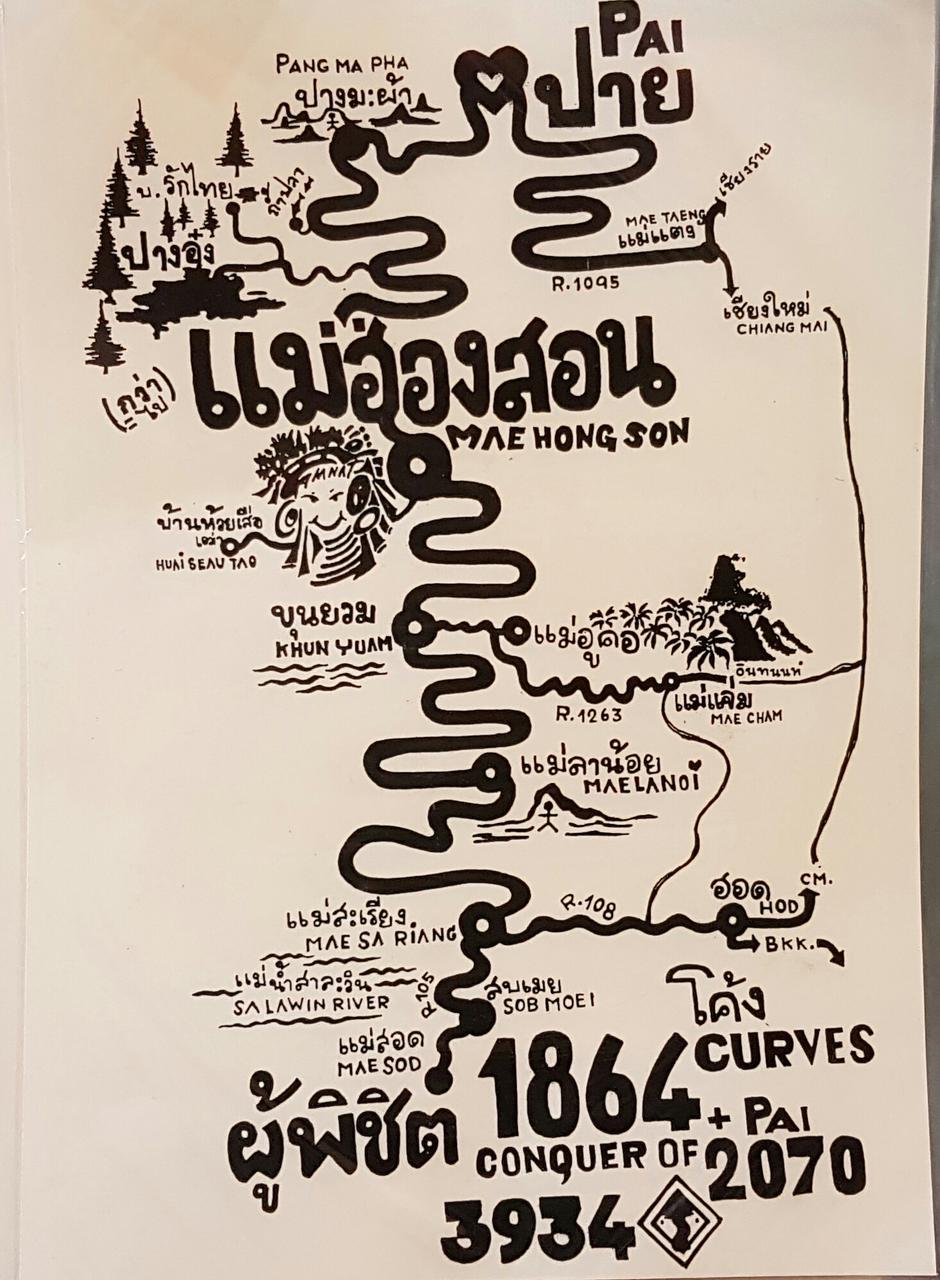 PAI
ปาย
PANG MA PHA
ปางมะผ้า
บ.รักไทย
ถ้ำปลา
ปางอุ๋ง
เชียงราย
MAE TAENG
แม่แตง
R.1095
เชียงใหม่
CHIANG MAI
(กว่า
จะไป)
แม่ฮ่องสอน
MAE HONG SON
AMNAT
บ้านห้วยเสือ
เฒ่า
HUAI SEAU TAO
ขุนยวม
KHUN YUAM
แม่อูคอ
อินทนนท์
แม่แจ่ม
MAE CHAM
R.1263
แม่ลาน้อย
MAELANOi
แม่สะเรียง
MAE SA RiANG
R.108
ฮอด
HOD
CM.
BKK.
แม่น้ำสาละวิน
SALAWIN RIVER
R.105
สบเมย
SOB MOEI
แม่สอด
MAE SOD
โค้ง
CURVES
ผู้พิชิต
1864
+ PAI
CONQUER OF
2070
3934